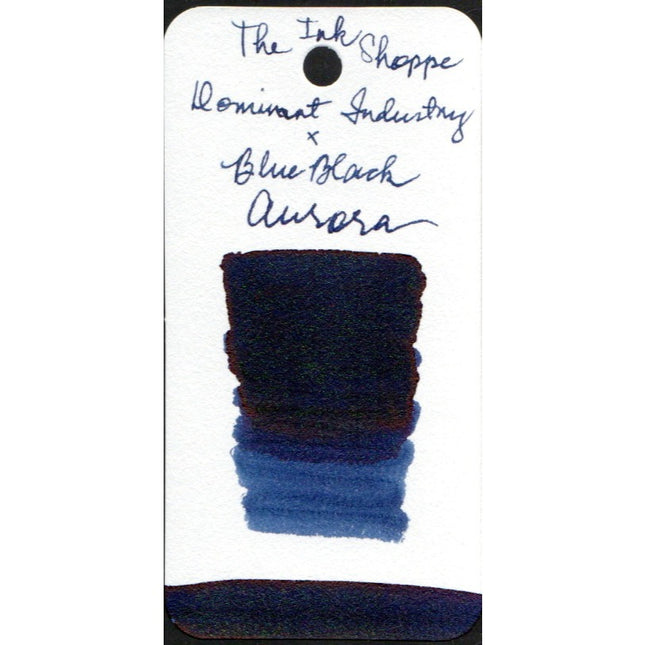 The Ink Shoppe
Dominant Industry
x
Blue Black
Aurora